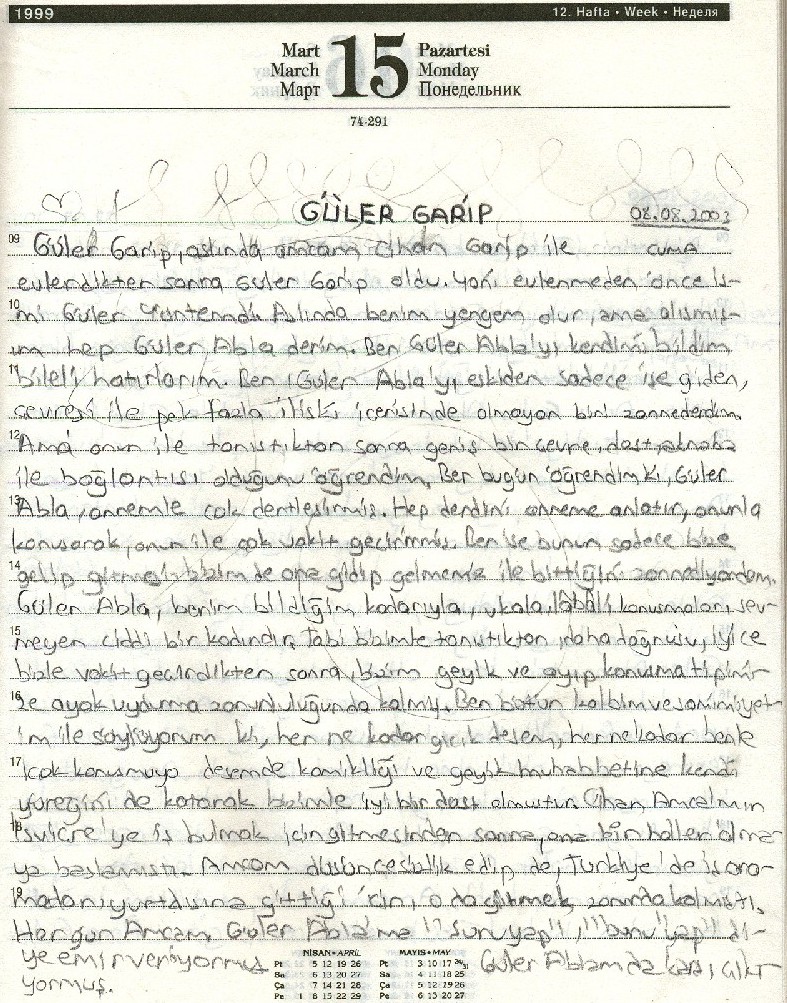 1999 12. Hafta • Week • Неделя
Mart 15 Pazartesi
March Monday
Март Понедельник
74-291
GÜLER GARİP 08.08.2003
09 Güler Garip, aslında amcam Cihan Garip ile CUMA
evlendikten sonra Güler Garip oldu. Yani evlenmeden önce is-
10 mi Güler Aslında benim yengem olur, ama alışmış-
ım hep Güler Abla derim. Ben Güler Abla'yı kendimi bildim
11 bileli hatırlarım. Ben Güler Abla'yı eskiden sadece işe giden,
çevresi ile pek fazla ilişki içerisinde olmayan biri zannederdim.
12 Ama onun ile tanıştıktan sonra geniş bir çevre, dost, akraba
ile bağlantısı olduğunu öğrendim. Ben bugün öğrendim ki, Güler
13 Abla, annemle çok dertleşirmiş. Hep derdini anneme anlatır, onunla
konuşarak, onun ile çok vakit geçirirmiş. Ben ise bunun sadece bize
14 gelip gitmesi, bizim de ona gidip gelmemiz ile bittiğini zannediyordum.
Güler Abla, benim bildiğim kadarıyla, ukala, lâbâli konuşmaları sev-
15 meyen ciddi bir kadındır. Tabi bizimle tanıştıktan, daha doğrusu, iyice
bizle vakit geçirdikten sonra, bizim geyik ve ayıp konuşma tipimi-
16 ze ayak uydurma zorunluluğunda kalmış. Ben bütün kalbim ve samimiyet-
im ile söylüyorum ki, her ne kadar gıcık desem, her ne kadar benle
17 çok konuşmuyo desemde komikliği ve geyik muhabbetine kendi
yüreğini de katarak bizimle iyi bir dost olmuştur. Cihan Amca'mın
18 İsviçre'ye iş bulmak için gitmesinden sonra, ona bir haller olma-
ya başlamıştı. Amcam düşüncesizlik edip de, Türkiye'de iş ara-
19 madan yurtdışına gittiği için, o da gitmek zorunda kalmıştı.
Hergün Amcam, Güler Abla'ma "şunu yap", "bunu yap" di-
ye emir veriyormuş Güler Ablam da karşı çıkı
yormuş.
NİSAN • APRIL MAYIS • MAY
Pt 5 12 19 26 Pt 3 10 17 24/31
Sa 6 13 20 27 Sa 4 11 18 25
Ça 7 14 21 28 Ça 5 12 19 26
Pe 1 8 15 22 29 Pe 6 13 20 27